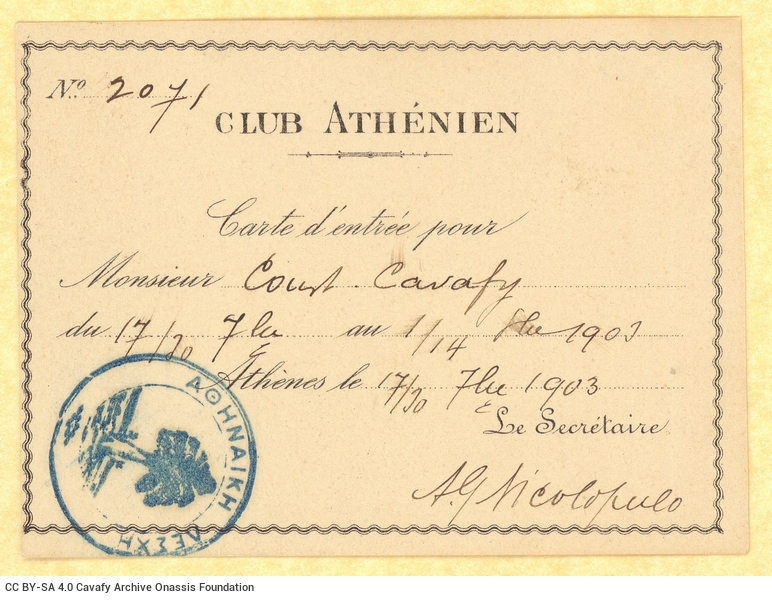 Nº 2071
CLUB ATHÉNIEN
Carte d'entrée pour
Monsieur Const. Cavafy
du 17/30 7bre au 1/14 8bre 1903
Athènes le 17/30 7bre 1903
Le Secrétaire
A G Nicolopulo
ΑΘΗΝΑΙΚΗ ΛΕΣΧΗ
CC BY-SA 4.0 Cavafy Archive Onassis Foundation